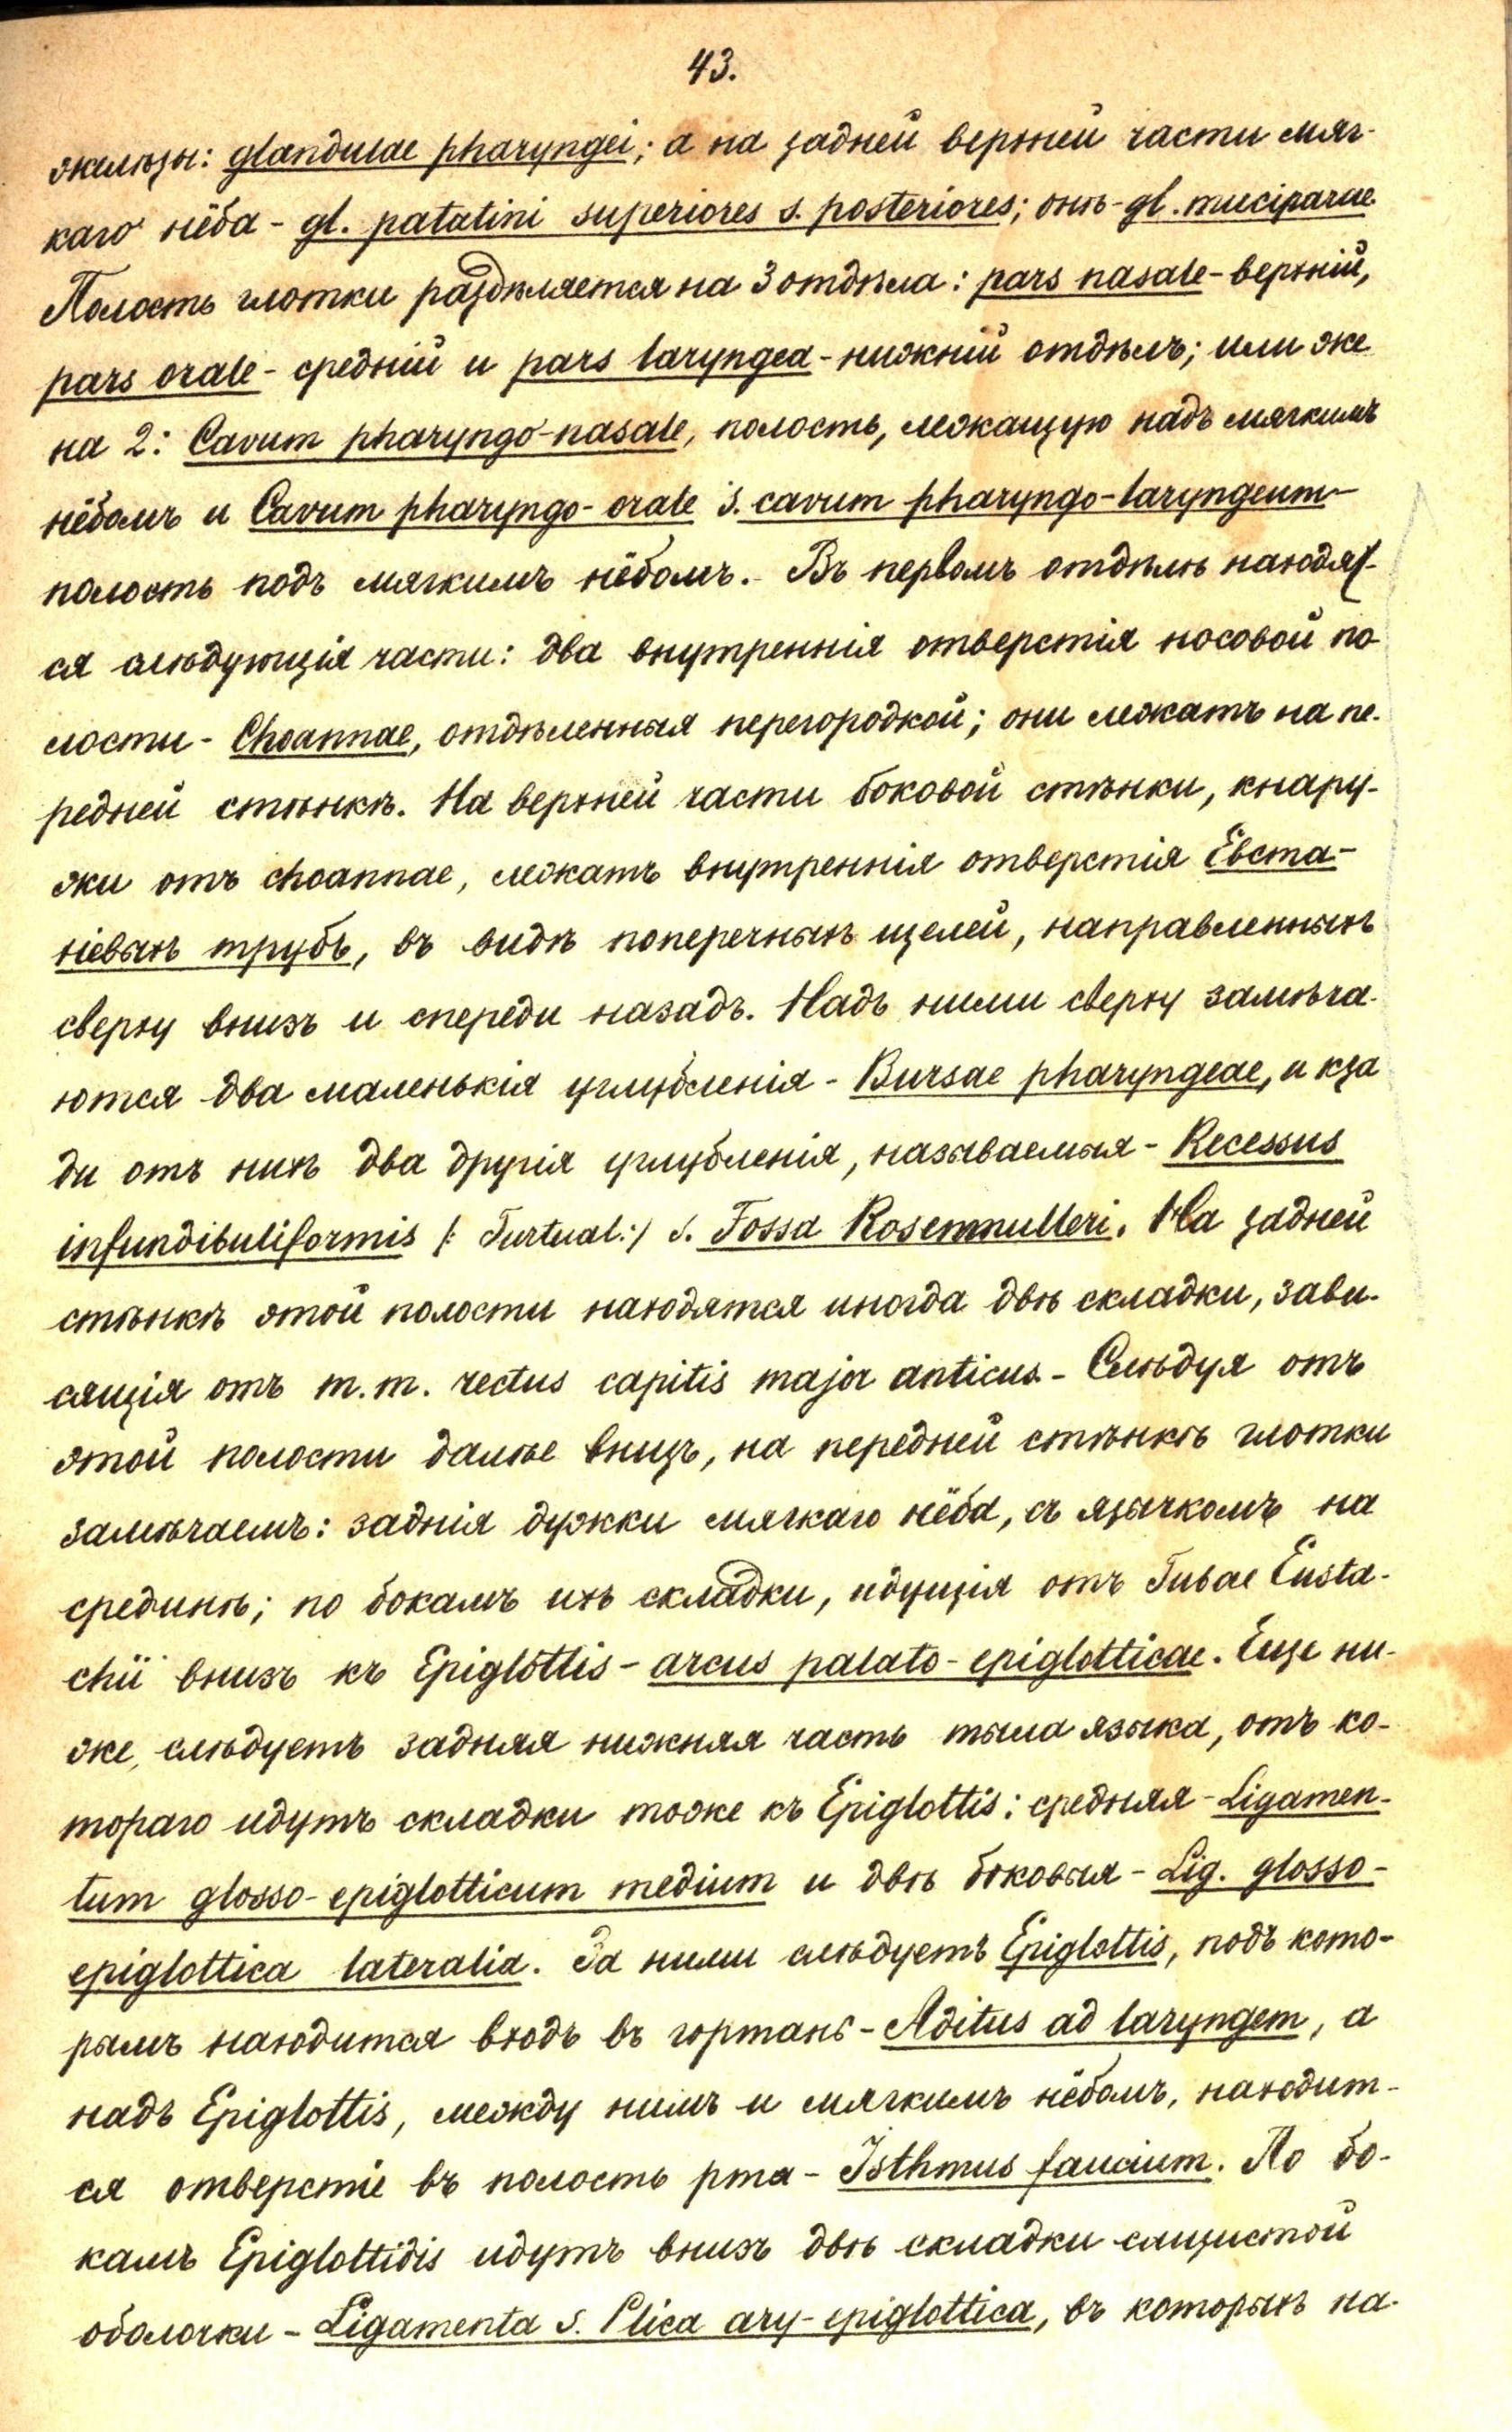 43.
железы: glandulae pharyngei; а на задней верхней части мяг-
каго нёба - gl. palatini superiores s. posteriores; онѣ - gl. muciparae.
Полость глотки раздѣляется на 3 отдѣла: pars nasale - верхній,
pars orale - средній и pars laryngea - нижній отдѣлъ; или же
на 2: Cavum pharyngo-nasale, полость, лежащую надъ мягкимъ
нёбомъ и Cavum pharyngo-orale s. cavum pharyngo-laryngeum -
полость подъ мягкимъ нёбомъ. - Въ первомъ отдѣлѣ находят-
ся слѣдующія части: два внутреннія отверстія носовой по
лости - Choannae, отдѣленныя перегородкой; они лежатъ на пе-
редней стѣнкѣ. На верхней части боковой стѣнки, кнару-
жи отъ choannae, лежатъ внутреннія отверстія Евста-
хіевыхъ трубъ, въ видѣ поперечныхъ щелей, направленныхъ
сверху внизъ и спереди назадъ. Надъ ними сверху замѣча-
ются два маленькія углубленія - Bursae pharyngeae, и кза
ди отъ нихъ два другія углубленія, называемыя - Recessus
infundibuliformis /: Turtual:/ s. Fossa Rosenmulleri. На задней
стѣнкѣ этой полости находятся иногда двѣ складки, зави-
сящія отъ m.m. rectus capitis major anticus. - Слѣдуя отъ
этой полости далѣе внизъ, на передней стѣнкѣ глотки
замѣчаемъ: заднія дужки мягкаго нёба, съ язычкомъ на
срединѣ; по бокамъ ихъ складки, идущія отъ Tubae Eusta-
chii внизъ къ Epiglottis - arcus palato-epiglotticae. Еще ни-
же, слѣдуетъ задняя нижняя часть тыла языка, отъ ко-
тораго идутъ складки тоже къ Epiglottis: средняя - Ligamen-
tum glosso-epiglotticum medium и двѣ боковыя - Lig. glosso-
epiglottica lateralia. За ними слѣдуетъ Epiglottis, подъ кото-
рымъ находится входъ въ гортань - Aditus ad laryngem, а
надъ Epiglottis, между нимъ и мягкимъ нёбомъ, находит-
ся отверстіе въ полость рта - Isthmus faucium. По бо-
камъ Epiglottidis идутъ внизъ двѣ складки слизистой
оболочки - Ligamenta s. Plica ary-epiglottica, въ которыхъ на-